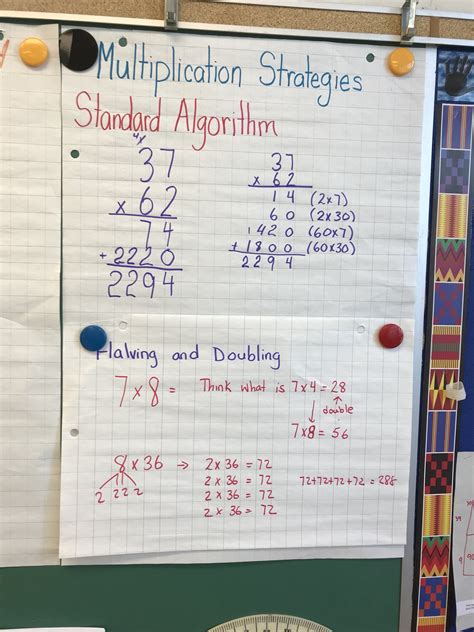 Multiplication Strategies
Standard Algorithm
37
x 62
74
+ 2220
2294
37
x 62
14 (2x7)
60 (2x30)
1420 (60x7)
+ 1800 (60x30)
2294
Halving and Doubling
7x8 = Think what is 7x4 = 28
double
7x8 = 56
8x36 → 2x36 = 72
2 x 36 = 72
2 x 36 = 72
2 x 36 = 72
2 2 2 2
72+72+72+72 = 288